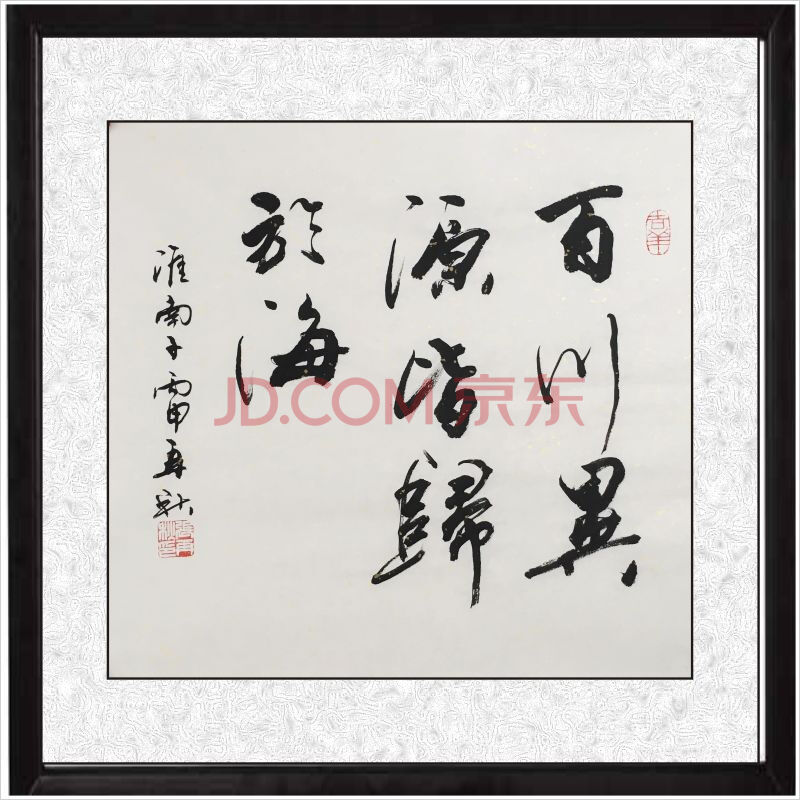 百川異
源皆歸
於海
淮南子雷再耕
JD.COM京东